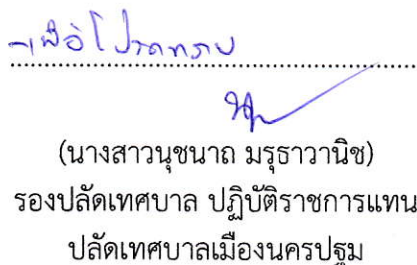 - เพื่อโปรดทราบ
(นางสาวนุชนาถ มรุธาวานิช)
รองปลัดเทศบาล ปฏิบัติราชการแทน
ปลัดเทศบาลเมืองนครปฐม